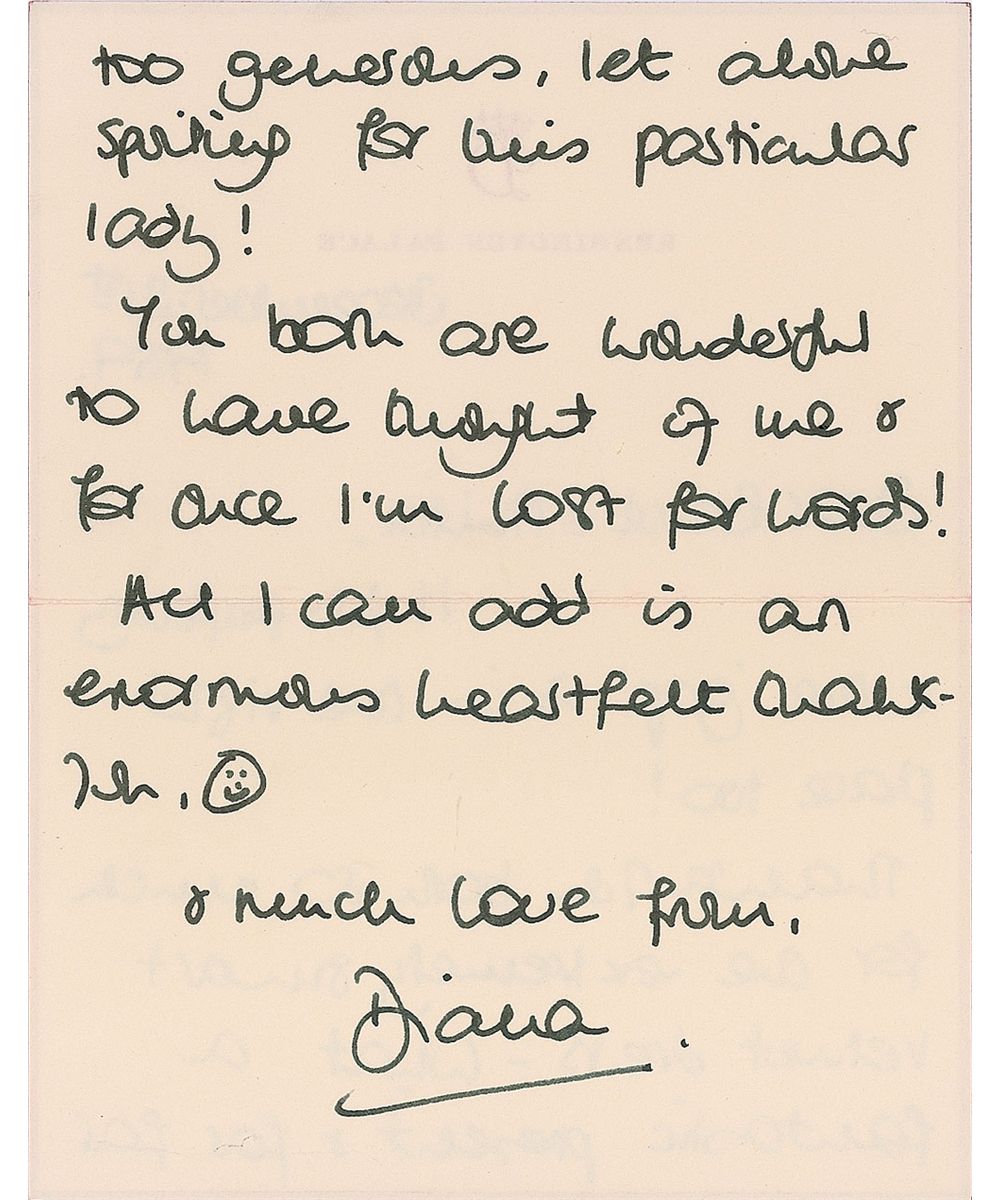 too generous, let alone
spoiling for this particular
lady!
You both are wonderful
to have thought of me &
for once I'm lost for words!
All I can add is an
enormous heartfelt thank-
you,
& much love from,
Diana.
KENSINGTON PALACE